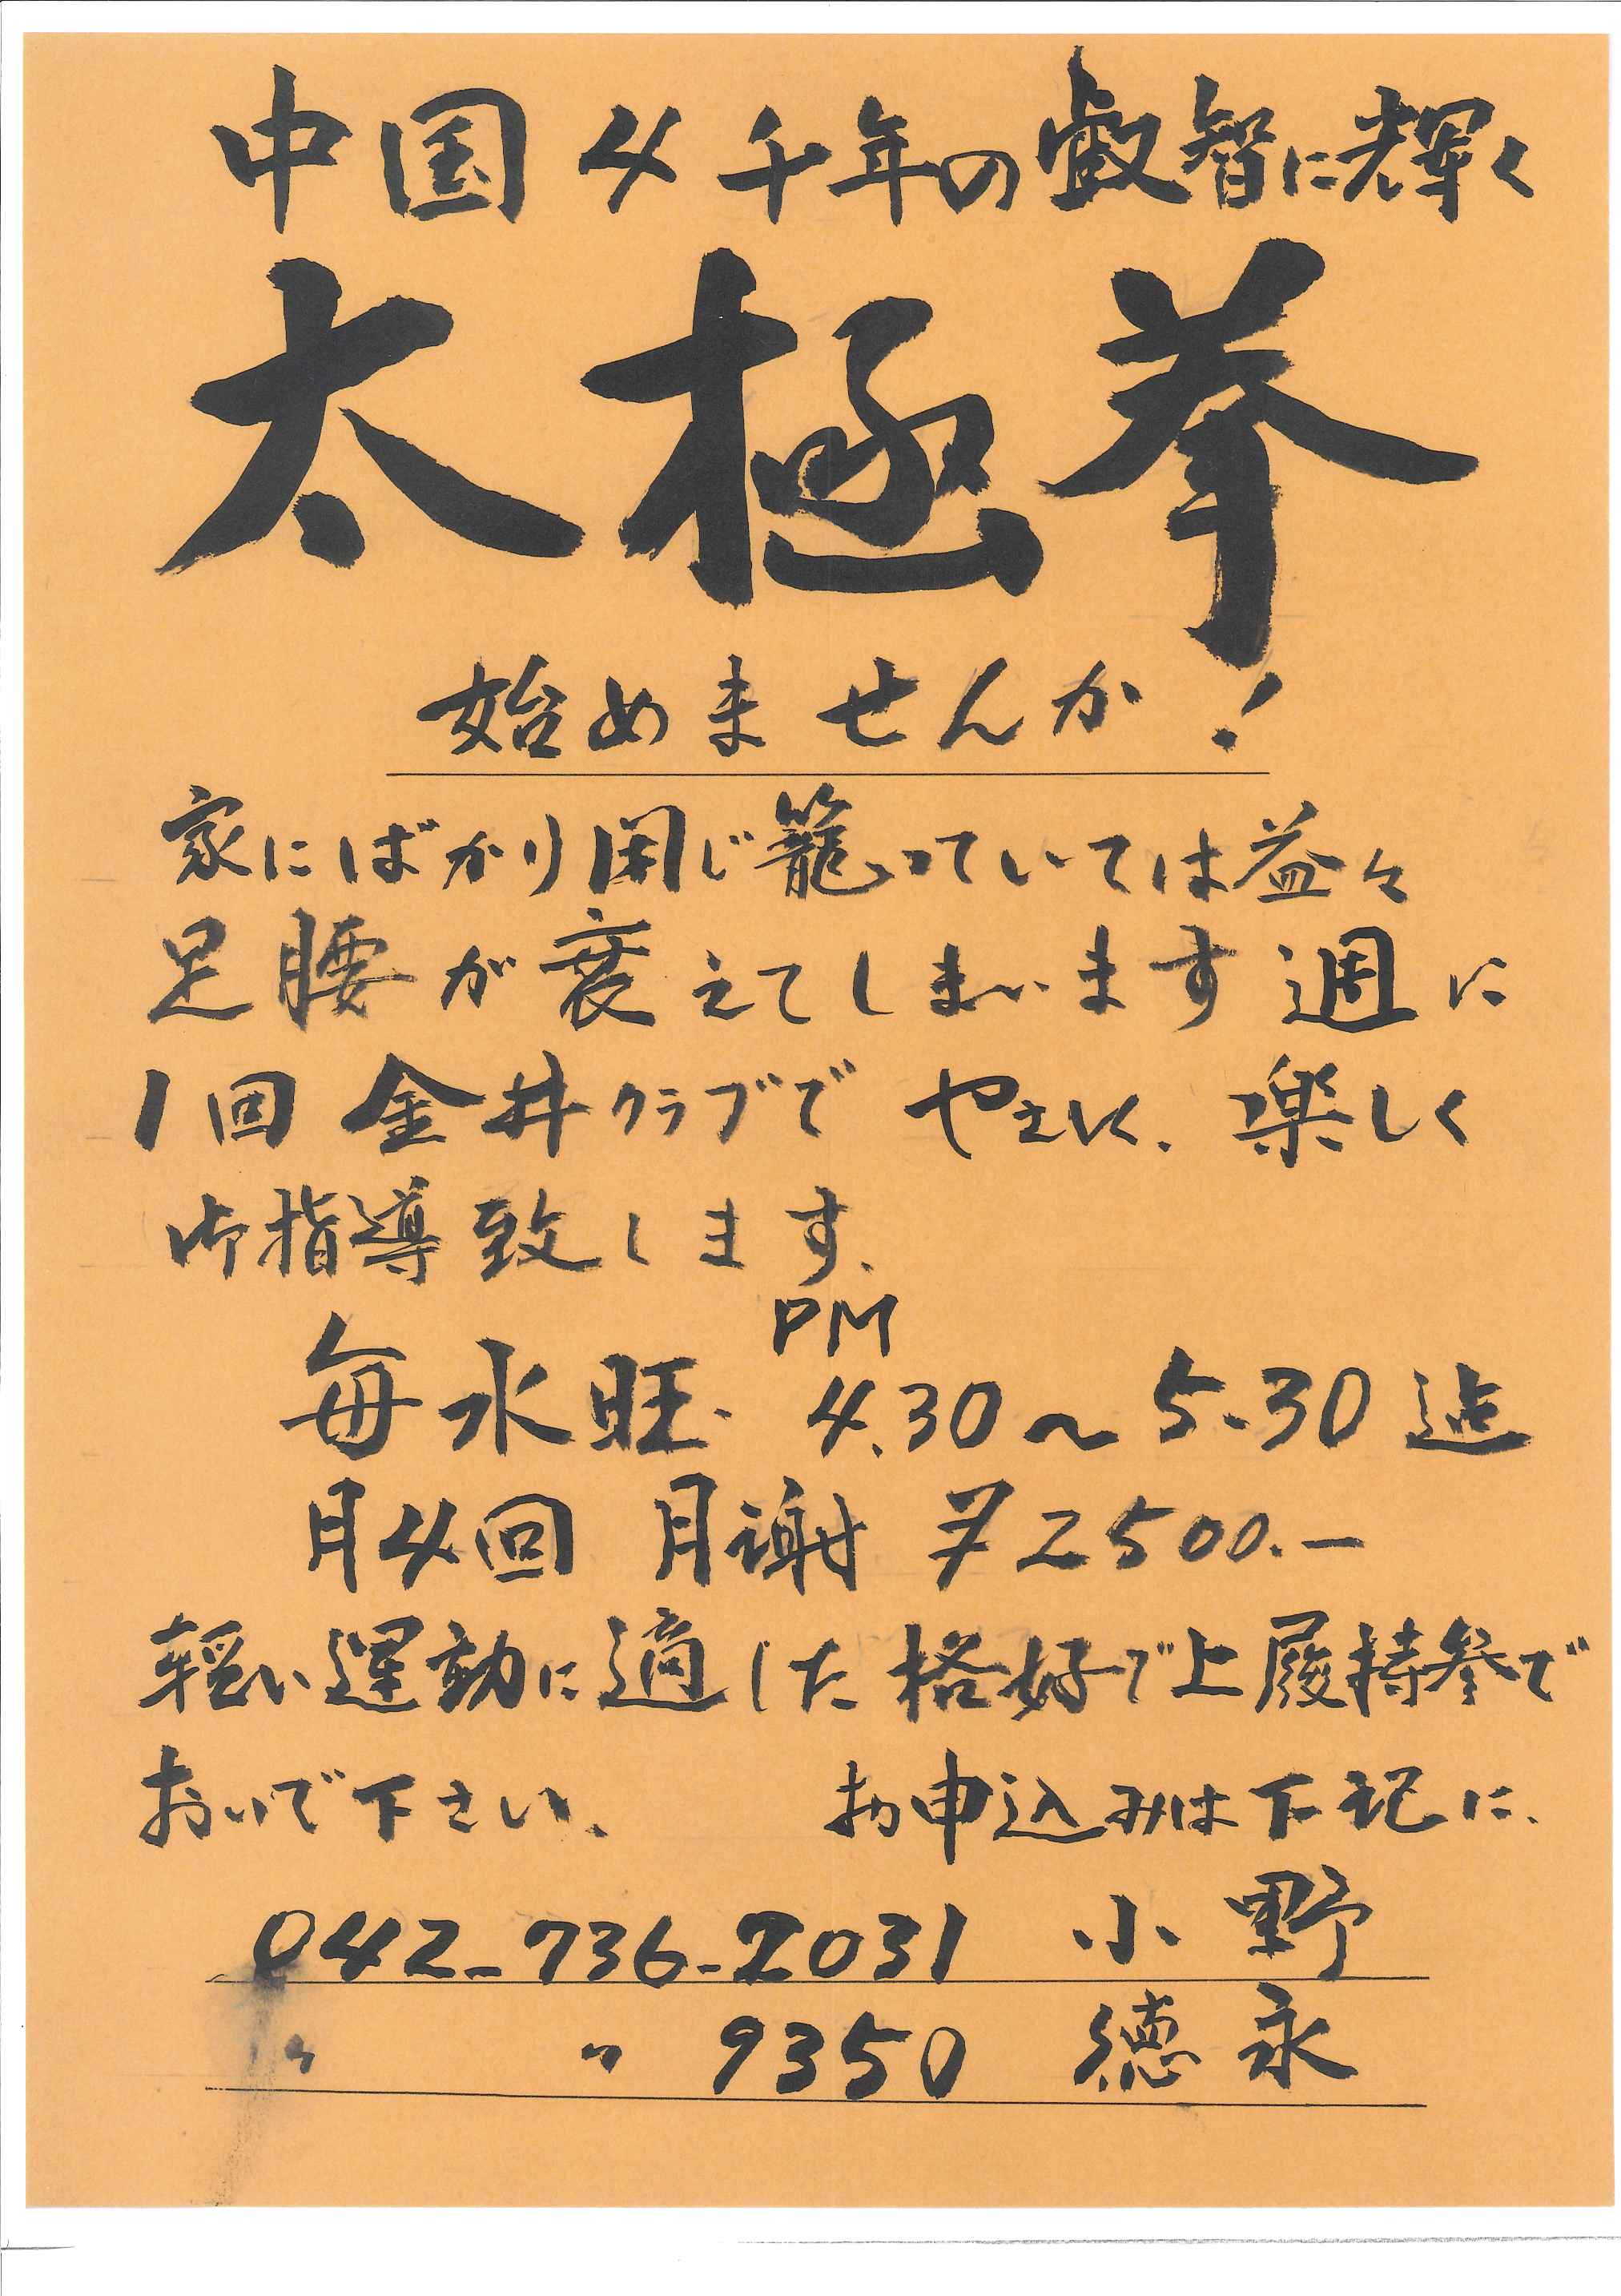 中国4千年の叡智に輝く
太極拳
始めませんか!
家にばかり閉じ籠っていては益々
足腰が衰えてしまいます 週に
1回 金井クラブで やさしく、楽しく
御指導致します、
PM
毎水旺. 4.30〜5.30迄
月4回 月謝 ¥2500.-
軽い運動に適した格好で上履持参で
おいで下さい、 お申込みは下記に、
042-736-2031 小野
〃 〃 9350 徳永